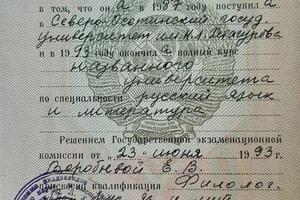 в том, что он а в 1987 году поступил а
в Северо-Осетинский госуд.
университет им. К.Л. Хетагурова
и в 1993 году окончил а полный курс
названного
университета
по специальности русский язык
и литература
Решением Государственной экзаменационной
комиссии от "23" июня 1993 г.
Воробьевой Е. В.
присвоена квалификация Филолог.